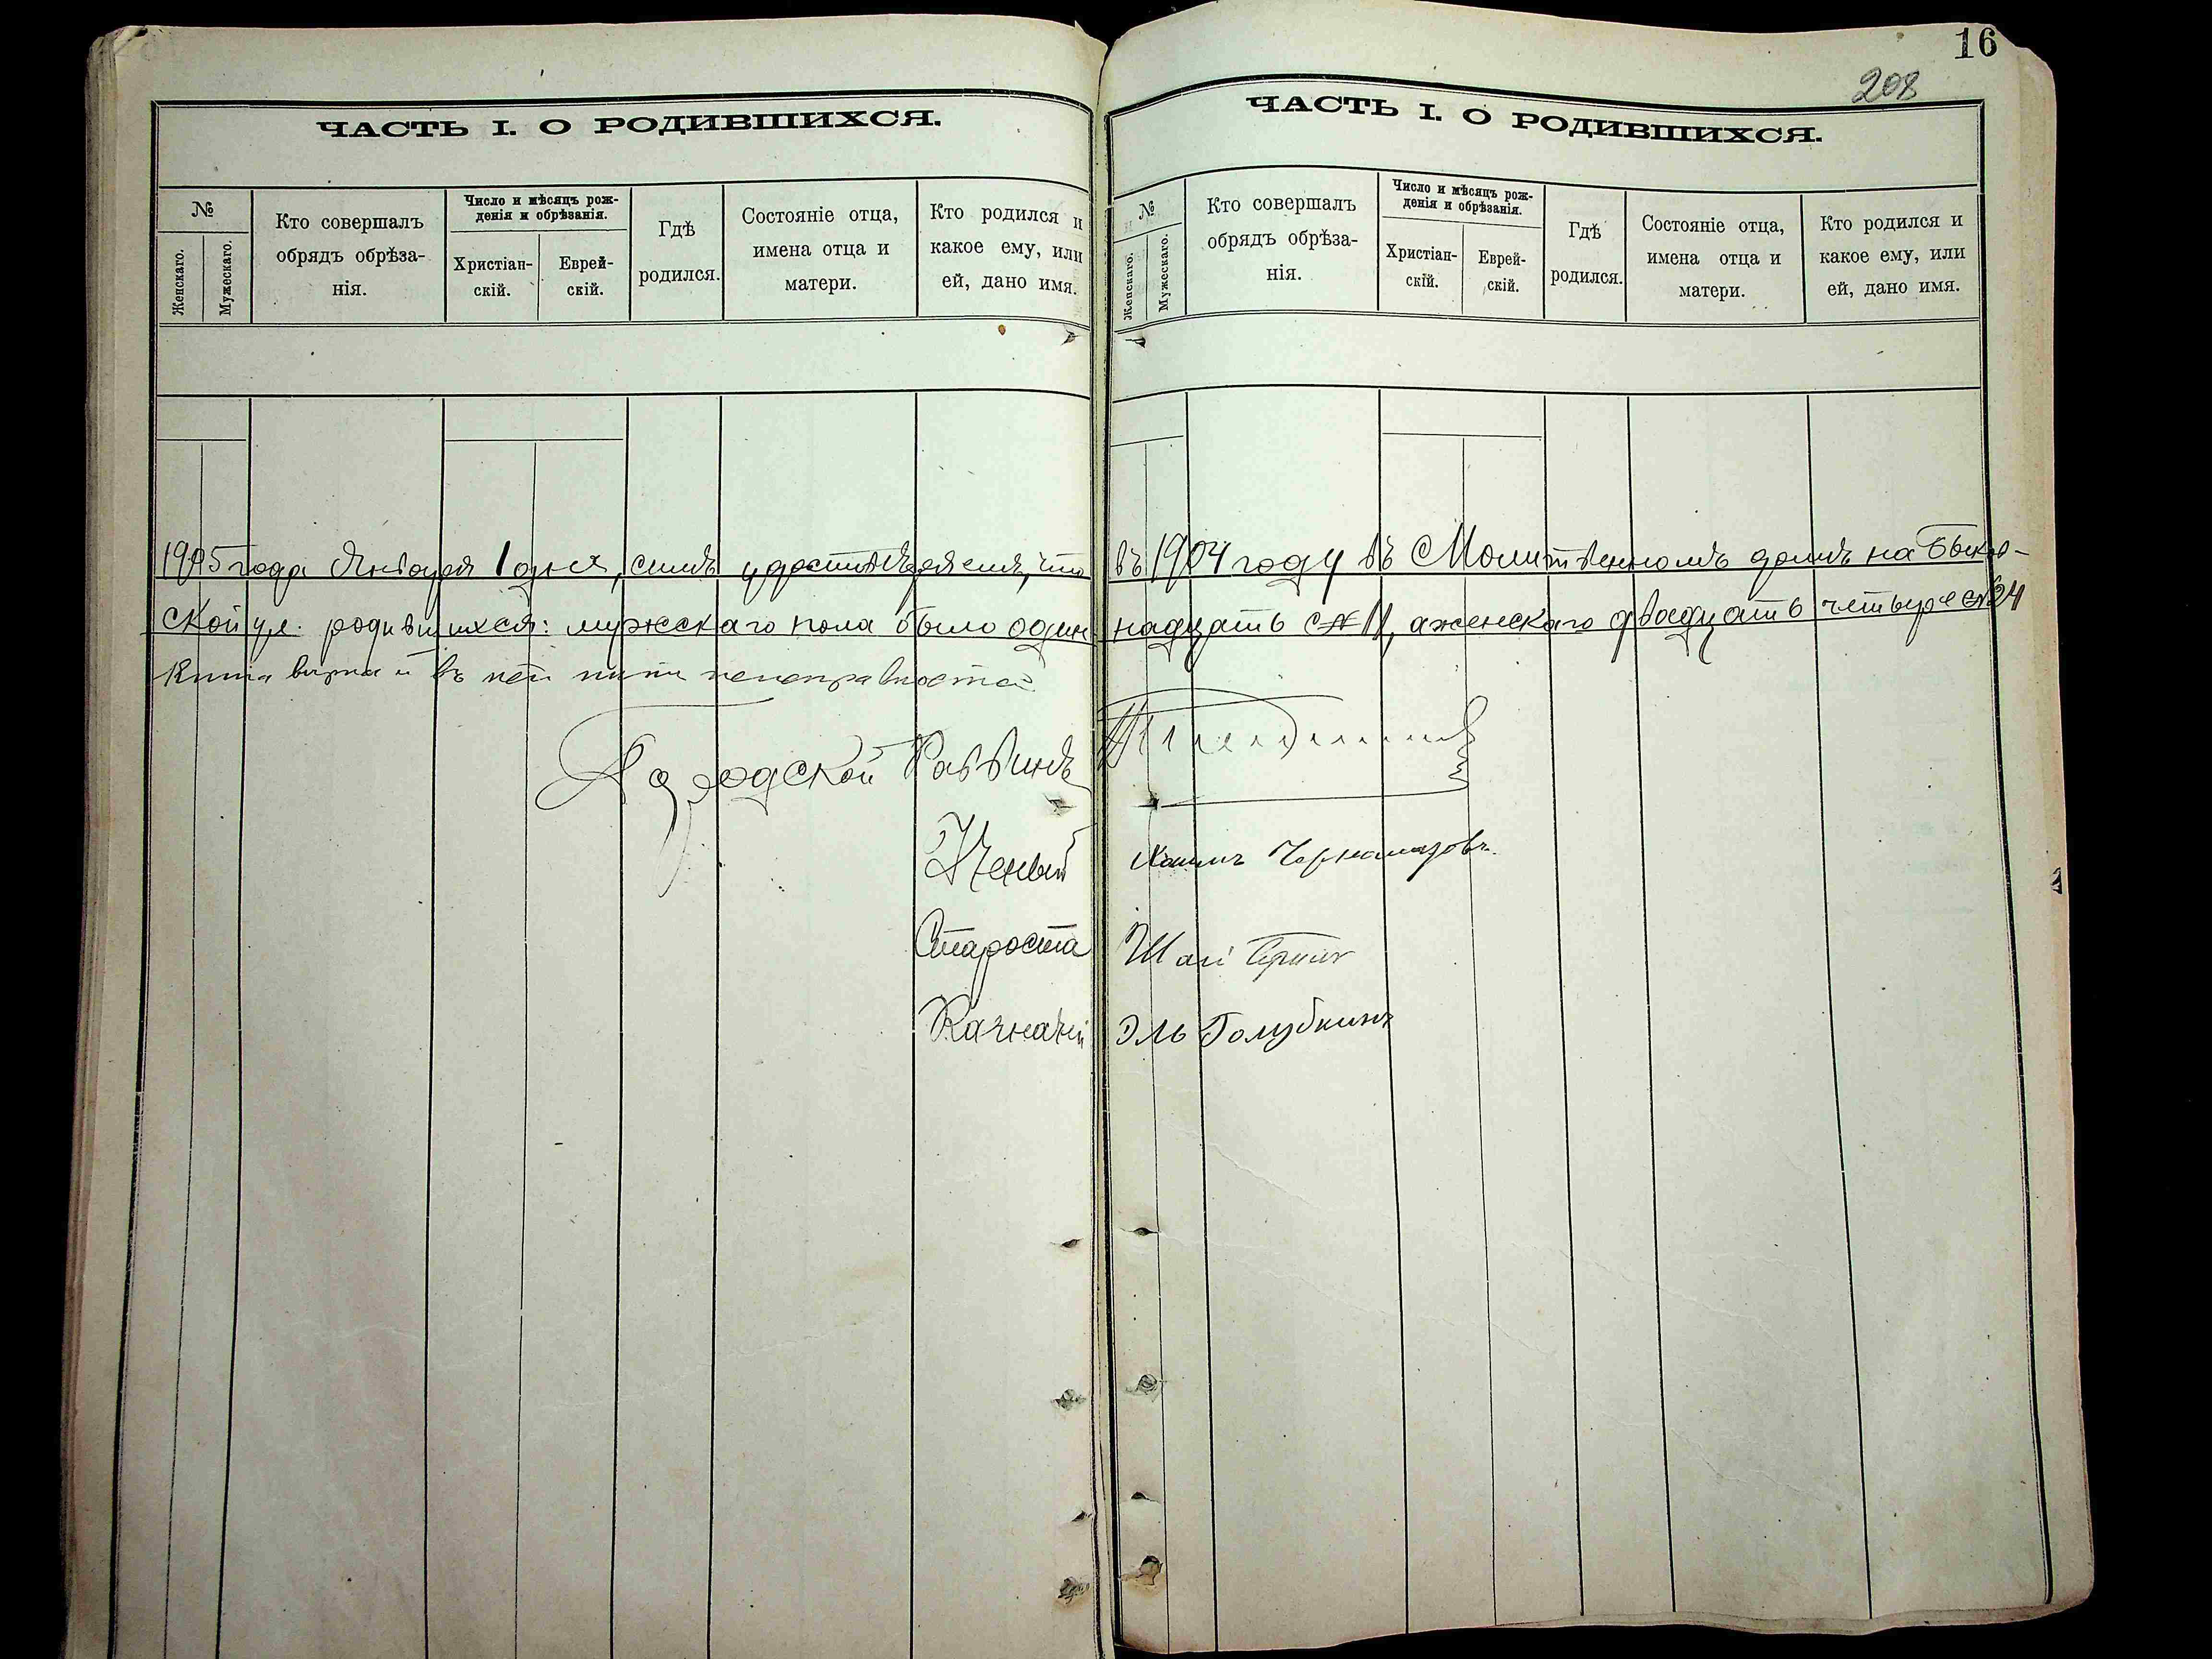 16
208
ЧАСТЬ I. О РОДИВШИХСЯ.
№
Женскаго.
Мужескаго.
Кто совершалъ
обрядъ обрѣза-
нія.
Число и мѣсяцъ рож-
денія и обрѣзанія.
Христіан-
скій.
Еврей-
скій.
Гдѣ
родился.
Состояніе отца,
имена отца и
матери.
Кто родился и
какое ему, или
ей, дано имя.
ЧАСТЬ I. О РОДИВШИХСЯ.
№
Женскаго.
Мужескаго.
Кто совершалъ
обрядъ обрѣза-
нія.
Число и мѣсяцъ рож-
денія и обрѣзанія.
Христіан-
скій.
Еврей-
скій.
Гдѣ
родился.
Состояніе отца,
имена отца и
матери.
Кто родился и
какое ему, или
ей, дано имя.
1905 года Января 1 дня, симъ удостовѣряемъ, что въ 1904 году въ Молитвенномъ домѣ на
ской ул. родившихся: мужскаго пола было один надцать 11, а женскаго двадцать четыре 24
Книга вѣрна и въ ней нѣтъ неисправностей
Городской Раввинъ
Ученый Хаимъ
Староста
Казначей Эль Голубкинъ